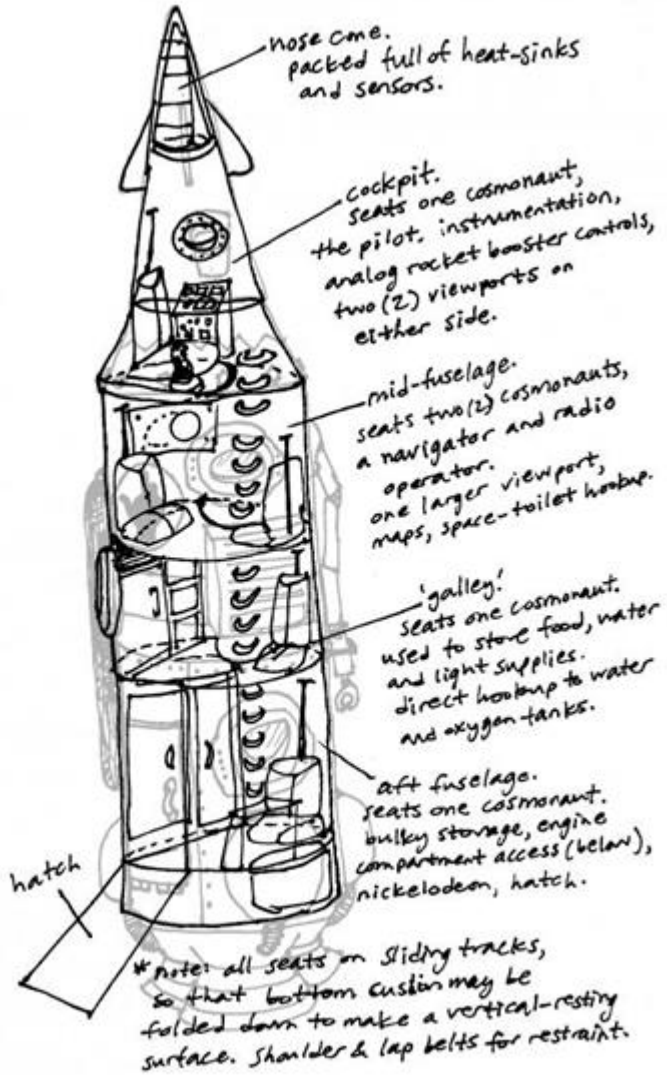 nose cone.
packed full of heat-sinks
and sensors.
cockpit.
seats one cosmonaut,
the pilot. instrumentation,
analog rocket booster controls,
two (2) viewports on
either side.
mid-fuselage.
seats two (2) cosmonauts,
a navigator and radio
operator.
one larger viewport,
maps, space-toilet hookup.
'galley'
seats one cosmonaut.
used to store food, water
and light supplies.
direct hookup to water
and oxygen tanks.
aft fuselage.
seats one cosmonaut.
bulky storage, engine
compartment access (below),
nickelodeon, hatch.
hatch
* note: all seats on sliding tracks,
so that bottom cushion may be
folded down to make a vertical-resting
surface. Shoulder & lap belts for restraint.